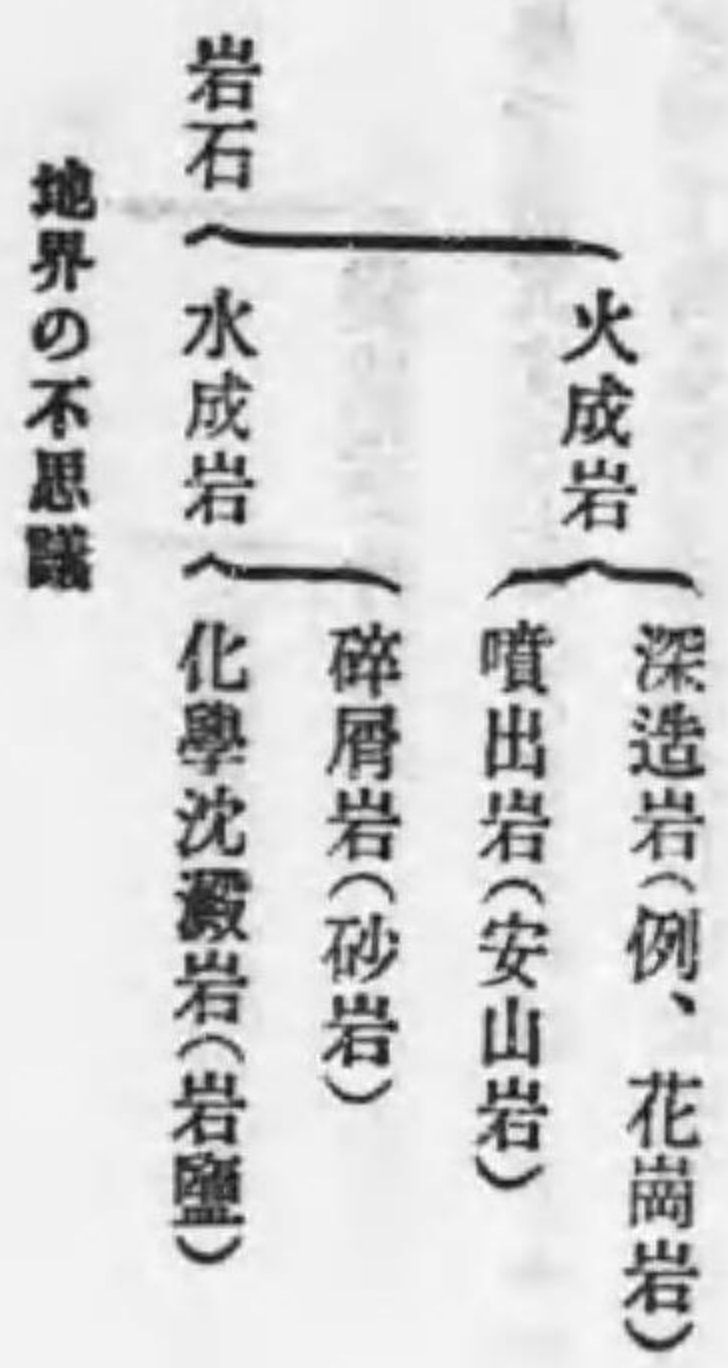 岩石
火成岩
深造岩(例、花崗岩)
噴出岩(安山岩)
水成岩
碎屑岩(砂岩)
化學沈澱岩(岩鹽)
地界の不思議